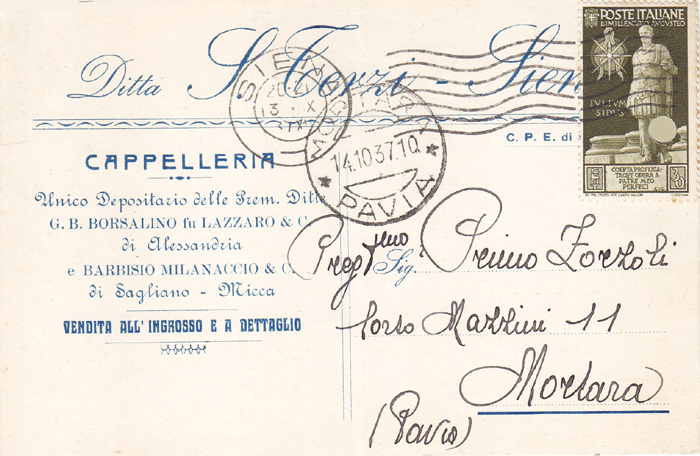 Ditta S. Terzi - Siena
C. P. E. di
CAPPELLERIA
Unico Depositario delle Prem. Ditte
G. B. BORSALINO fu LAZZARO & C.
di Alessandria
e BARBISIO MILANACCIO & C.
di Sagliano - Micca
VENDITA ALL' INGROSSO E A DETTAGLIO
SIENA
13 X
MORTARA
14.10.37.10
* PAVIA *
POSTE ITALIANE
BIMILLENARIO AUGUSTEO
IVLIVM
SIDVS
COEPTA PROFLIGA-
TAQVE OPERA A
PATRE MEO
PERFECI
30
Preg.mo Sig. Primo Zorzoli
Corso Mazzini 11
Mortara
(Pavia)